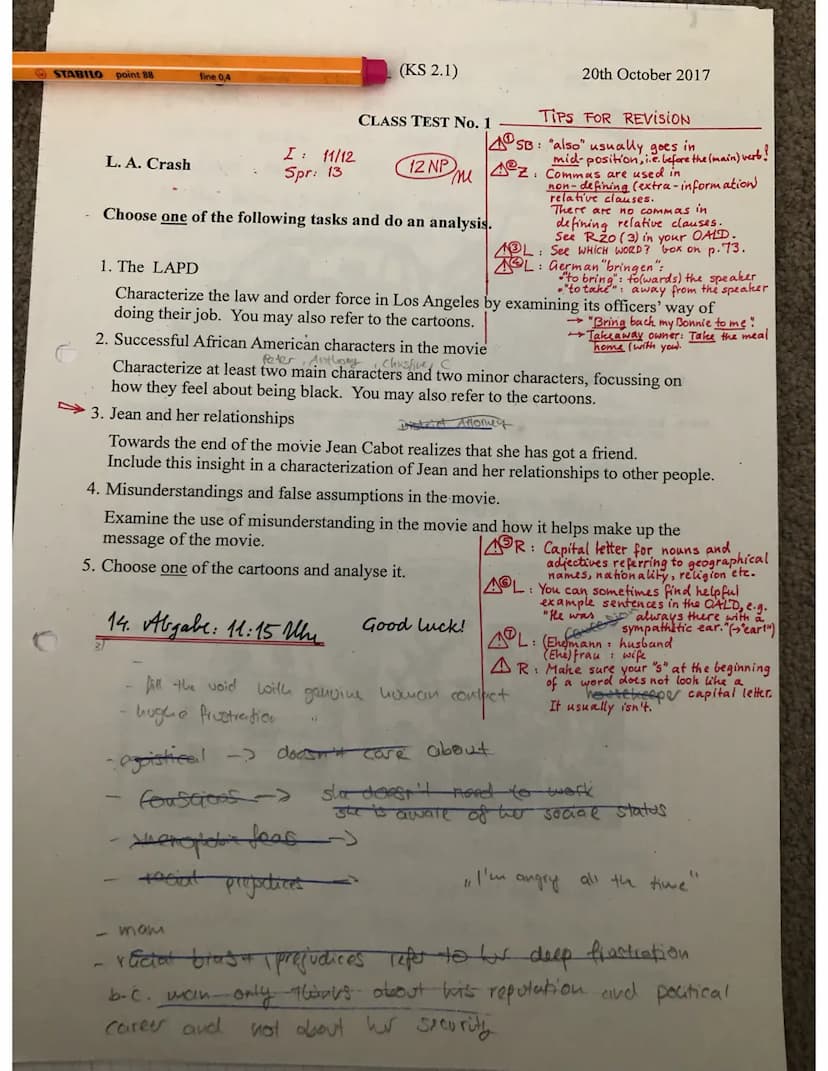 STABILO point 88 fine 0,4
(KS 2.1)
20th October 2017
CLASS TEST No. 1
TIPS FOR REVISION
L. A. Crash
I: 11/12
Spr: 13
12 NP
① SB: "also" usually goes in
mid-position, i.e. before the (main) verb!
② Z: Commas are used in
non-defining (extra-information)
relative clauses.
There are no commas in
defining relative clauses.
See R20 (3) in your OALD.
③ L: See WHICH WORD? box on p. 73.
④ L: German "bringen":
• "to bring": to(wards) the speaker
• "to take": away from the speaker
→ "Bring back my Bonnie to me".
→ Takeaway owner: Take the meal
home (with you).
Choose one of the following tasks and do an analysis.
1. The LAPD
Characterize the law and order force in Los Angeles by examining its officers' way of
doing their job. You may also refer to the cartoons.
2. Successful African American characters in the movie
Peter, Anthony, Christine, C
Characterize at least two main characters and two minor characters, focussing on
how they feel about being black. You may also refer to the cartoons.
3. Jean and her relationships
District Attorney
Towards the end of the movie Jean Cabot realizes that she has got a friend.
Include this insight in a characterization of Jean and her relationships to other people.
4. Misunderstandings and false assumptions in the movie.
Examine the use of misunderstanding in the movie and how it helps make up the
message of the movie.
5. Choose one of the cartoons and analyse it.
⑤ R: Capital letter for nouns and
adjectives referring to geographical
names, nationality, religion etc.
⑥ L: You can sometimes find helpful
example sentences in the OALD, e.g.
"He was always there with a
sympathetic ear." (→"ear!")
⑦ L: (Ehe)mann: husband
(Ehe)frau: wife
R: Make sure your "s" at the beginning
of a word does not look like a
housekeeper capital letter.
It usually isn't.
14. Abgabe: 11:15 Uhr
3)
Good luck!
- fill the void with genuine human contact
- huge frustration "
- egoistical -> doesn't care about
- -> she doesn't need to work
she is aware of her social status
- ->
- racial prejudices ->
„I'm angry all the time"
- mom
- racial bias + prejudices refer to her deep frustration
b.c. man only thinks about his reputation and political
career and not about her security